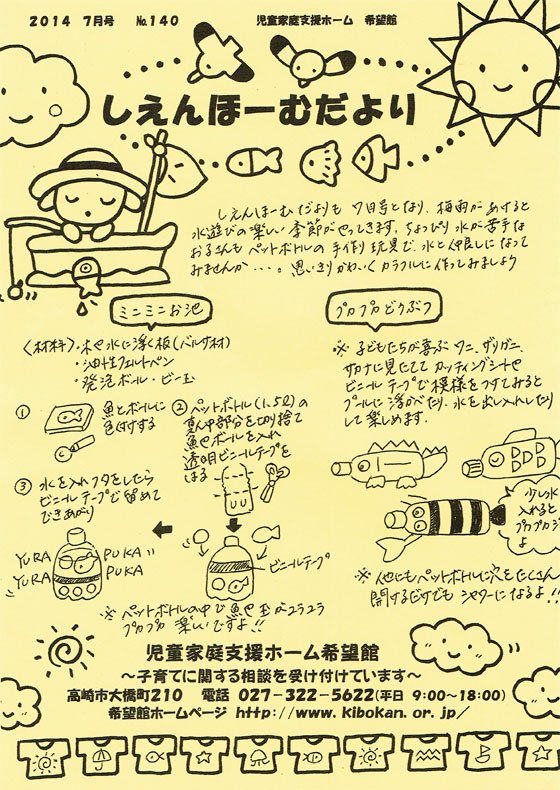 2014 7月号 No.140 児童家庭支援ホーム 希望館
しえんほーむだより
しえんほーむだよりも7月号となり、梅雨があけると
水遊びの楽しい季節がやってきます。ちょっぴり水が苦手な
お子さんもペットボトルの手作り玩具で、水と仲良しになって
みませんか・・・。思いきりかわいくカラフルに作ってみましょう
ミニミニお池
〈材料〉・木や水に浮く板(バルサ材)
・油性フェルトペン
・発泡ボール・ビー玉
① 魚とボールに
色付けする
② ペットボトル(1.5ℓ)の
真中部分を切り捨て
魚やボールを入れ
透明ビニールテープを
はる
③ 水を入れフタをしたら
ビニールテープで留めて
できあがり
YURA YURA
PUKA PUKA
ビニールテープ
※ ペットボトルの中で魚や玉がユラユラ
プカプカ 楽しいですよ!!
プカプカどうぶつ
※ 子どもたちが喜ぶワニ、ザリガニ、
サカナに見たててカッティングシートや
ビニールテープで模様をつけてみると
プールに浮かべたり、水を出し入れしたり
して楽しめます。
少し水
入れると
プカプカう
よ
※ 他にもペットボトルに穴をたくさん
開けるだけでもシャワーになるよ!!
児童家庭支援ホーム希望館
～子育てに関する相談を受け付けています～
高崎市大橋町210 電話 027-322-5622(平日 9:00～18:00)
希望館ホームページ http://www.kibokan.or.jp/